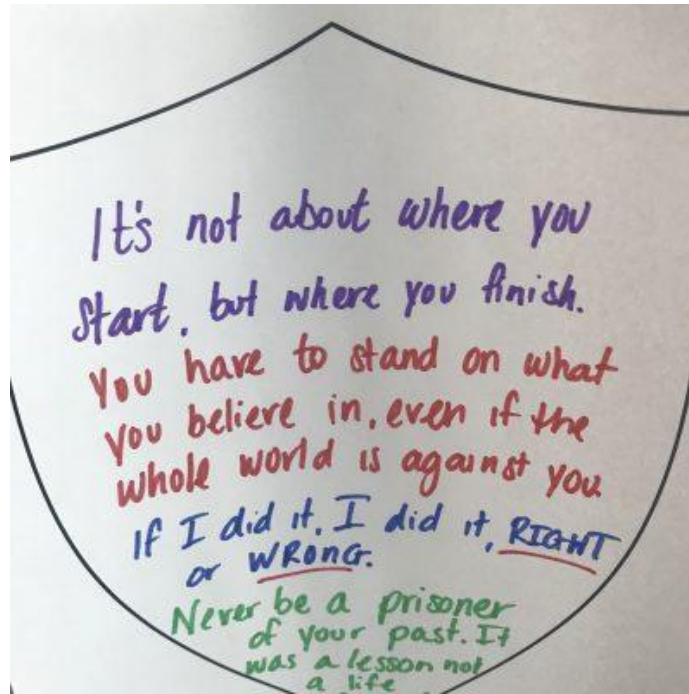 It's not about where you
start, but where you finish.
You have to stand on what
you believe in, even if the
whole world is against you.
If I did it, I did it, RIGHT
or WRONG.
Never be a prisoner
of your past. It
was a lesson not
a life